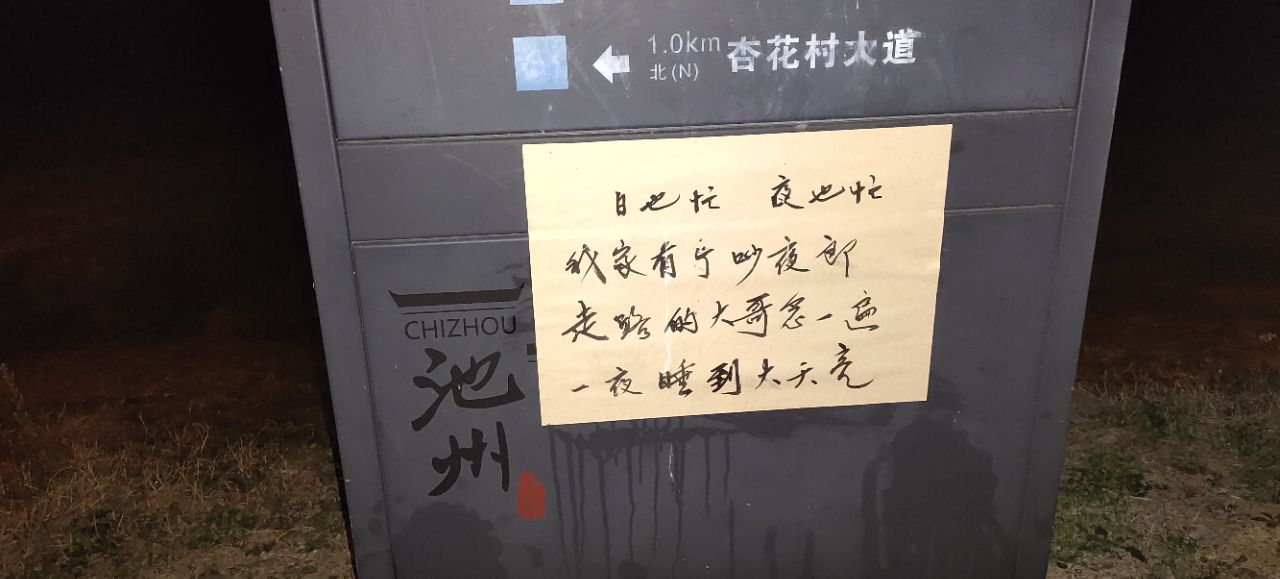 1.0km 杏花村大道
北(N)
日也忙 夜也忙
我家有个吵夜郎
走路的大哥念一遍
一夜睡到大天亮
CHIZHOU
池州